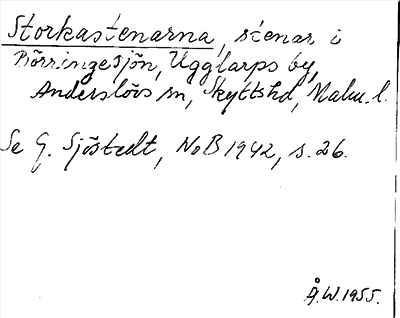 Storkastenarna, stenar i
Börringesjön, Ugglarps by,
Anderslövs sn, Skyttshd, Malm. l.
Se G. Sjöstedt, NoB 1942, s. 26.
Å.W. 1955.